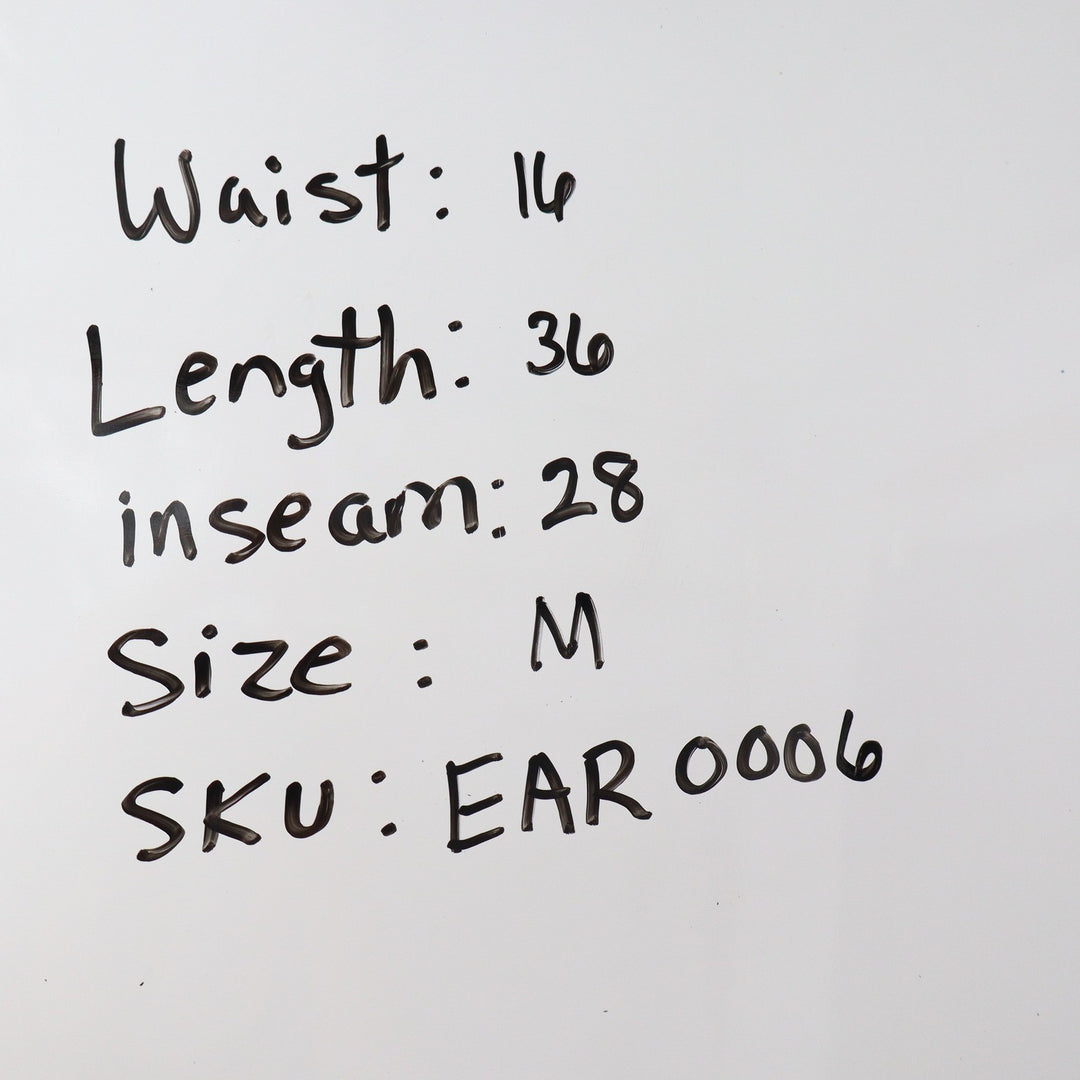 Waist: 16
Length: 36
inseam: 28
Size: M
SKU: EAR 0006